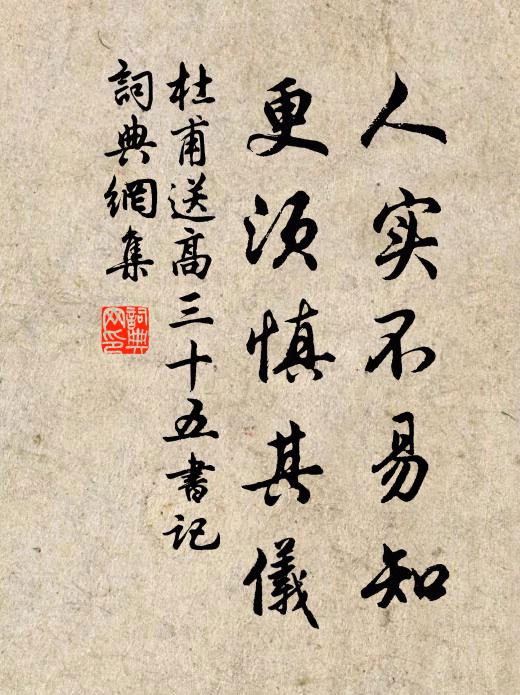 人实不易知
更须慎其儀
杜甫送高三十五書记
詞典網集
詞典网印